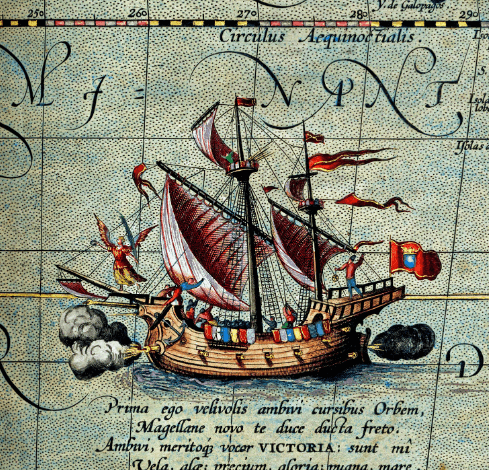 V. de Galopagos
250 260 270 280 290
Circulus Aequinoctialis.
Prima ego velivolis ambivi cursibus Orbem,
Magellane novo te duce ducta freto.
Ambivi, meritoq; vocor VICTORIA: sunt mî
Vela, alæ; precium, gloria; pugna, mare.